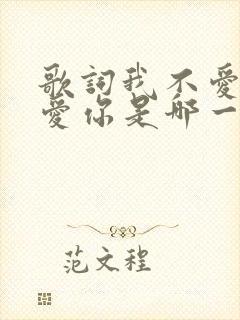 歌詞我不愛
愛你是哪一
范文程